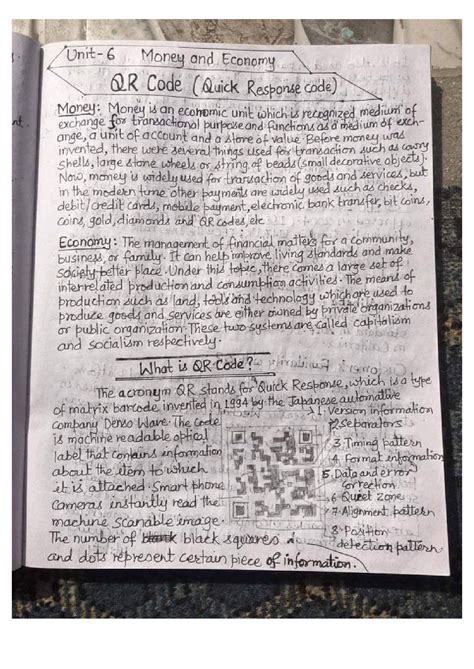 Unit-6 Money and Economy
QR Code (Quick Response code)
Money: Money is an economic unit which is recognized medium of
exchange for transactional purpose and functions as a medium of exch-
ange, a unit of account and a store of value. Before money was
invented, there were several things used for transaction such as cowry
shells, large stone wheels or string of beads (small decorative objects).
Now, money is widely used for transaction of goods and services, but
in the modern time other payments are widely used such as checks,
debit/credit cards, mobile payment, electronic bank transfer, bit coins,
coins, gold, diamonds and QR codes, etc
Economy: The management of financial matters for a community,
business, or family. It can help improve living standards and make
society better place. Under this topic, there comes a large set of
interrelated production and consumption activities. The means of
production such as land, tools and technology which are used to
produce goods and services are either owned by private organizations
or public organization. These two systems are called capitalism
and socialism respectively.
What is QR Code?
The acronym QR stands for Quick Response, which is a type
of matrix barcode, invented in 1994 by the Japanese automative
company Denso Wave. The code
is machine readable optical
label that contains information
about the item to which
it is attached. Smart phone
cameras instantly read the
machine scanable image.
The number of black squares
and dots represent certain piece of information.
1. Version information
2. Separators
3. Timing pattern
4. Format information
5. Data and error
correction
6. Quiet zone
7. Alignment pattern
8. Position
detection pattern